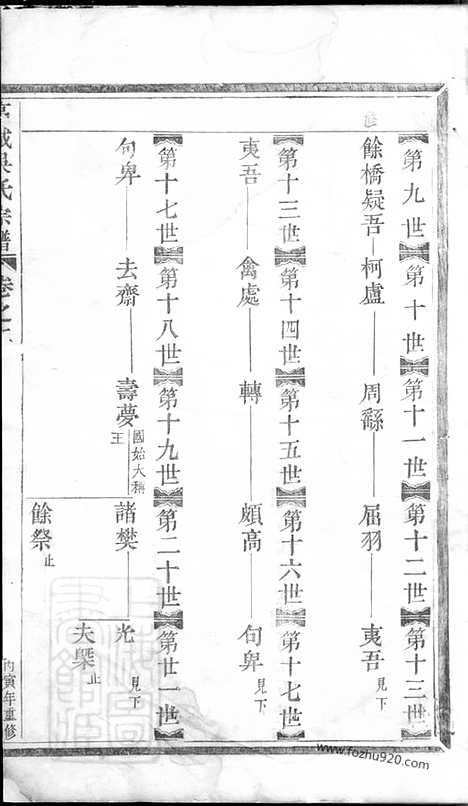 第九世 第十世 第十一世 第十二世 第十三世
餘橋疑吾 柯盧 周繇 屈羽 夷吾 見下
第十三世 第十四世 第十五世 第十六世 第十七世
夷吾 禽處 轉 頗高 句卑 見下
第十七世 第十八世 第十九世 第二十世 第廿一世
句卑 去齋 壽夢 國始大稱王 諸樊 光 見下
夫槩 止
餘祭 止
城吳氏宗譜 卷之
丙寅年重修
www.fozhu920.com